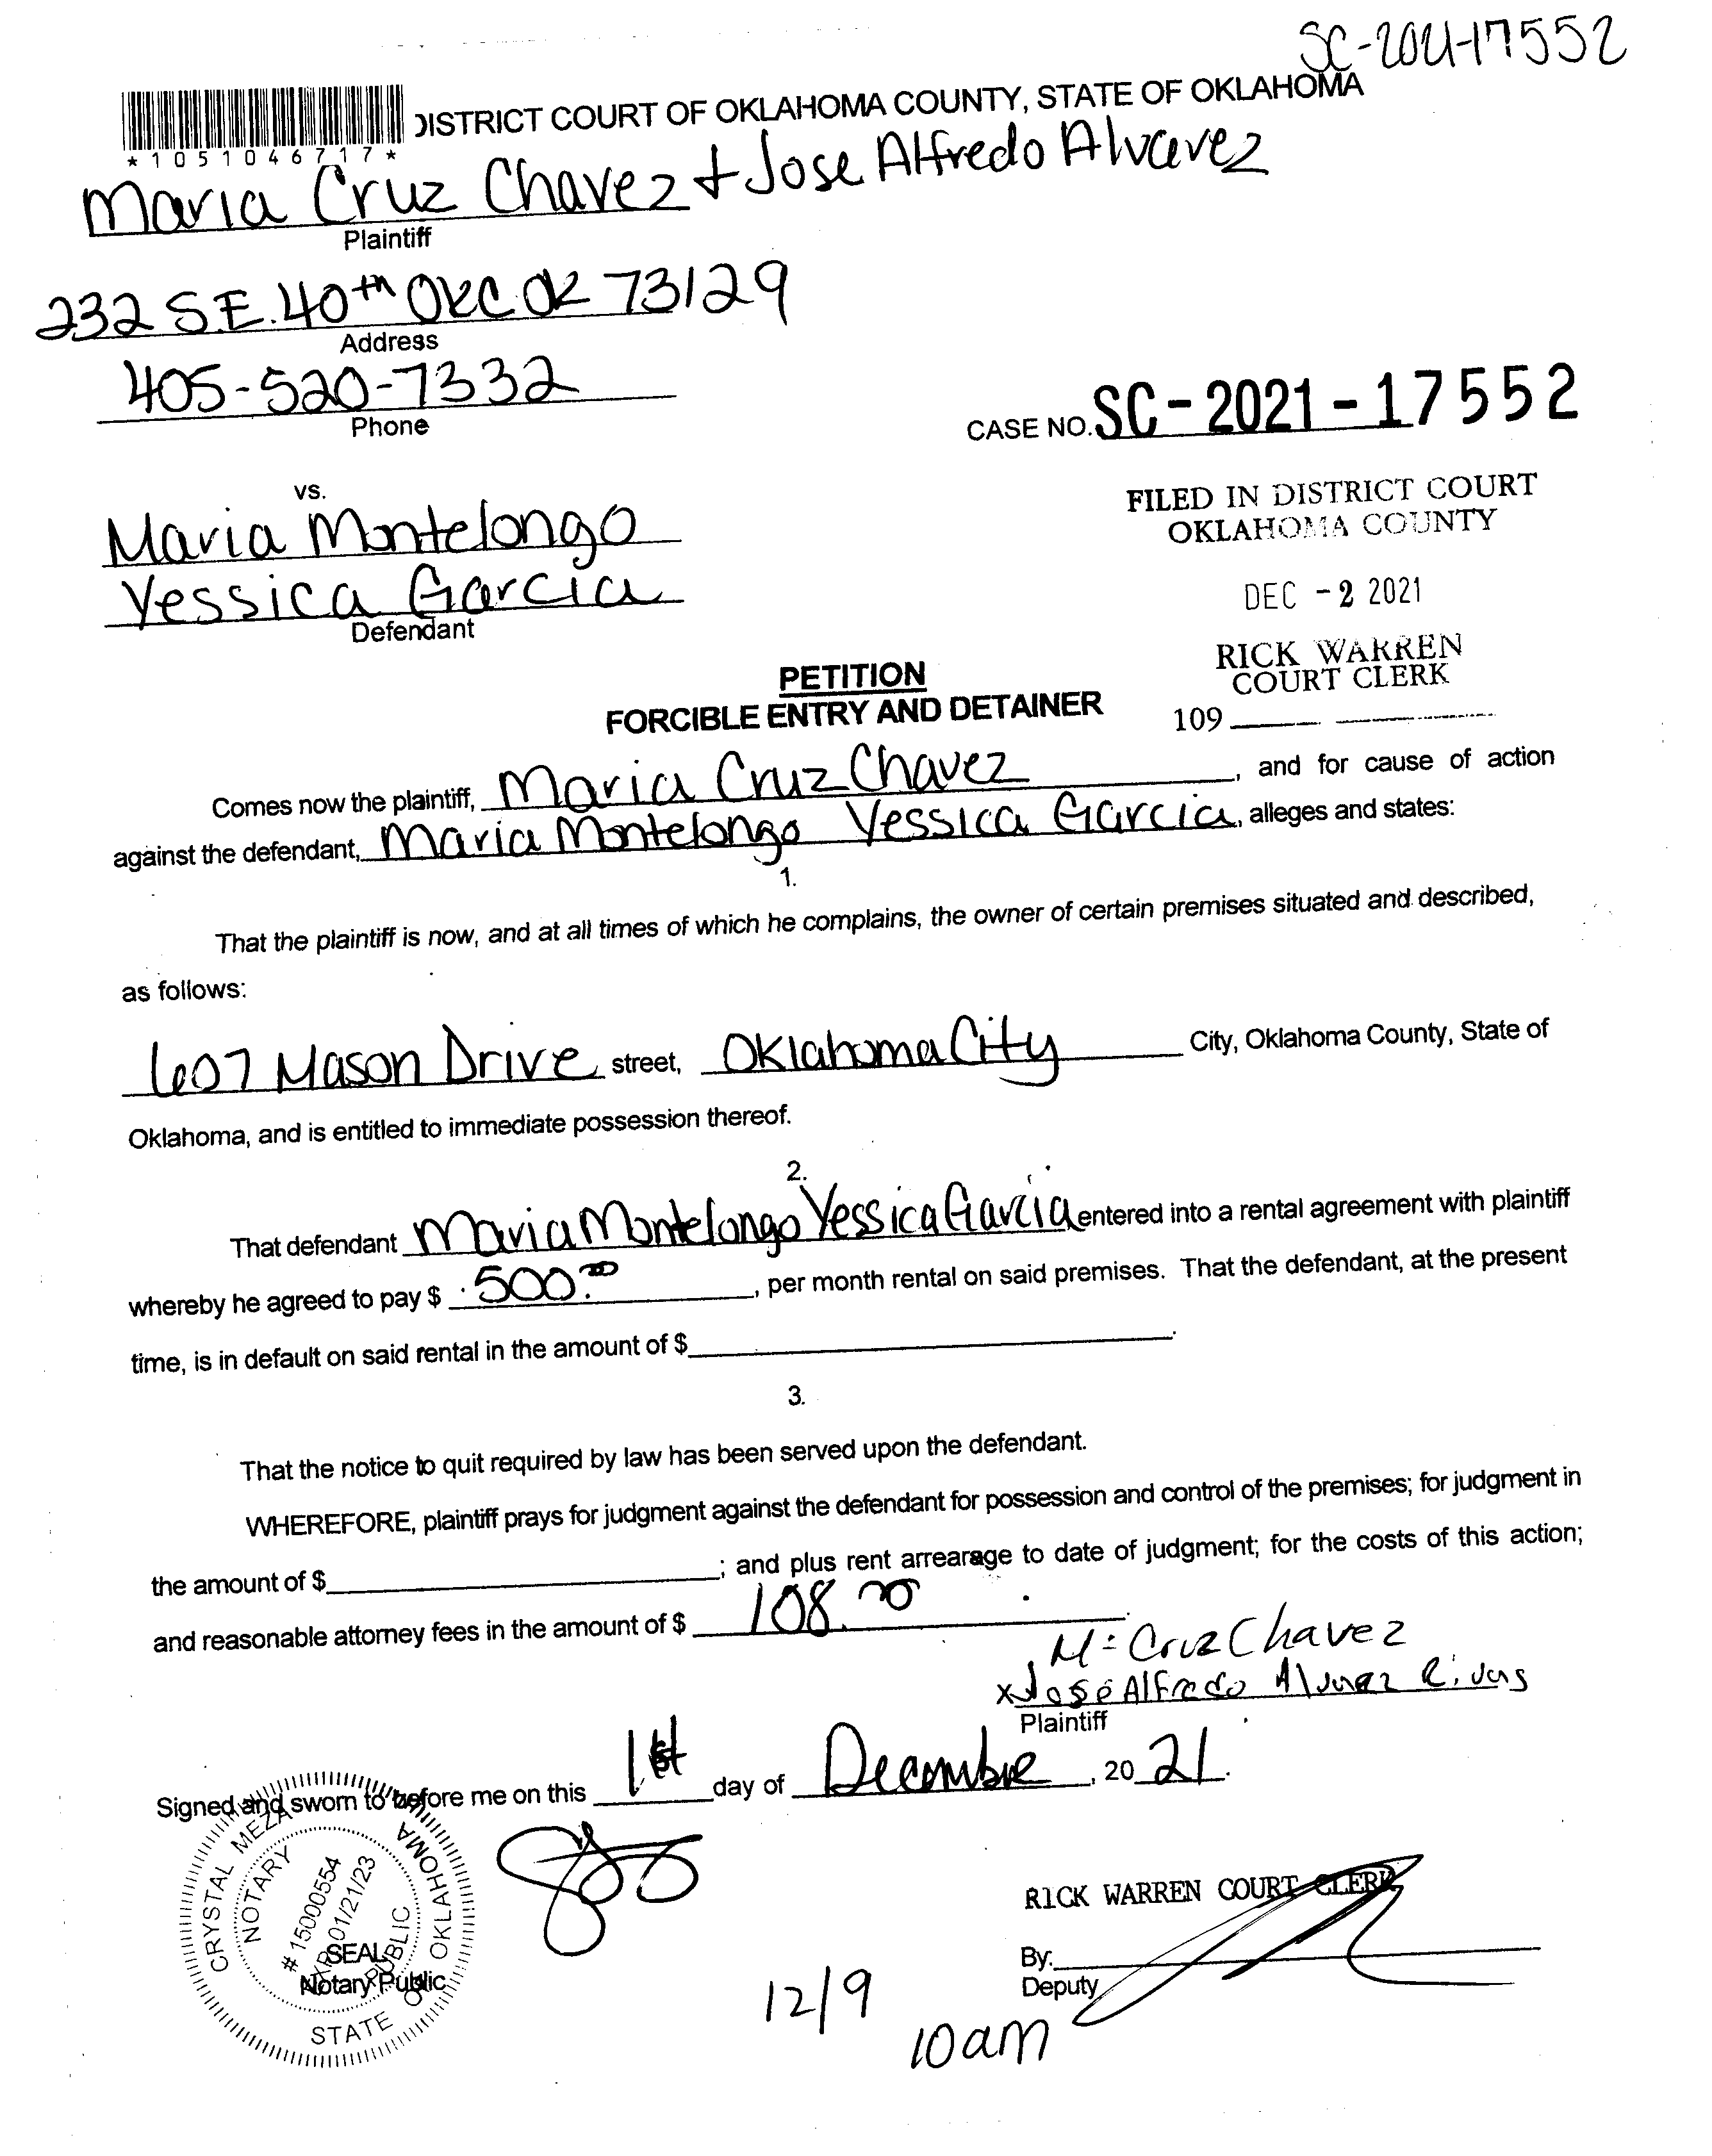 SC-2021-17552
DISTRICT COURT OF OKLAHOMA COUNTY, STATE OF OKLAHOMA
*1051046717*
Maria Cruz Chavez + Jose Alfredo Alvarez
Plaintiff
232 S.E. 40th OKC OK 73129
Address
405-520-7332
Phone
CASE NO. SC-2021-17552
vs.
FILED IN DISTRICT COURT
OKLAHOMA COUNTY
Maria Montelongo
Yessica Garcia
Defendant
DEC -2 2021
RICK WARREN
COURT CLERK
109
PETITION
FORCIBLE ENTRY AND DETAINER
Comes now the plaintiff, Maria Cruz Chavez, and for cause of action
against the defendant, Maria Montelongo Yessica Garcia, alleges and states:
1.
That the plaintiff is now, and at all times of which he complains, the owner of certain premises situated and described,
as follows:
607 Mason Drive street, Oklahoma City City, Oklahoma County, State of
Oklahoma, and is entitled to immediate possession thereof.
2.
That defendant Maria Montelongo Yessica Garcia entered into a rental agreement with plaintiff
whereby he agreed to pay $ 500.00, per month rental on said premises. That the defendant, at the present
time, is in default on said rental in the amount of $
3.
That the notice to quit required by law has been served upon the defendant.
WHEREFORE, plaintiff prays for judgment against the defendant for possession and control of the premises; for judgment in
the amount of $; and plus rent arrearage to date of judgment; for the costs of this action;
and reasonable attorney fees in the amount of $ 108.00
M= Cruz Chavez
x José Alfredo Alvarez Rivas
Plaintiff
Signed and sworn to before me on this 1st day of Decembre, 2021.
CRYSTAL MEZA
NOTARY PUBLIC
STATE OF OKLAHOMA
# 15000554
EXP. 01/21/23
SEAL
Notary Public
RICK WARREN COURT CLERK
By:
Deputy
12/9
10am